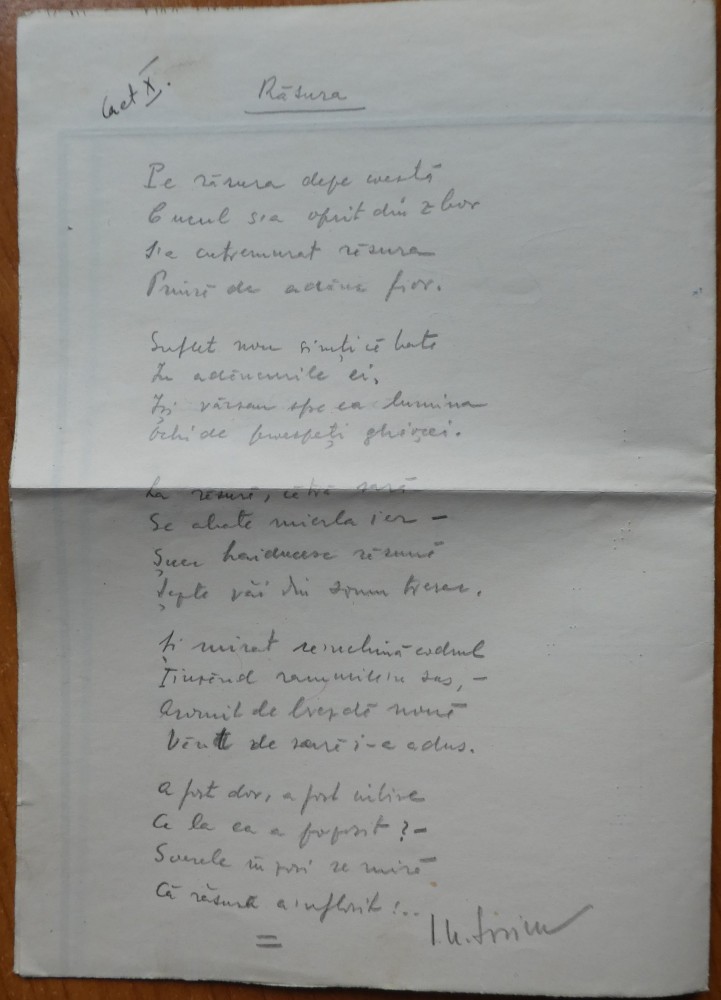 Caet X.
Răsura
Pe răsura depe coastă
Cucul s'a oprit din zbor
S'a cutremurat răsura
Prinsă de adânc fior.
Suflet nou simți că bate
În adâncurile ei,
Își vărsau spre ea lumina
Ochi de proaspeți ghiocei.
La răsură, cătră sară
Se abate mierla iar –
Șuer haiducesc răsună
Șepte văi din somn tresar.
Și mirat se'nchină codrul
Ținând ramurile'n sus, –
Aromit de brazdă nouă
Vânt de sară i-a adus.
A fost dor, a fost iubire
Ce la ea a poposit? –
Soarele în zori se miră
Că răsura a'nflorit!..